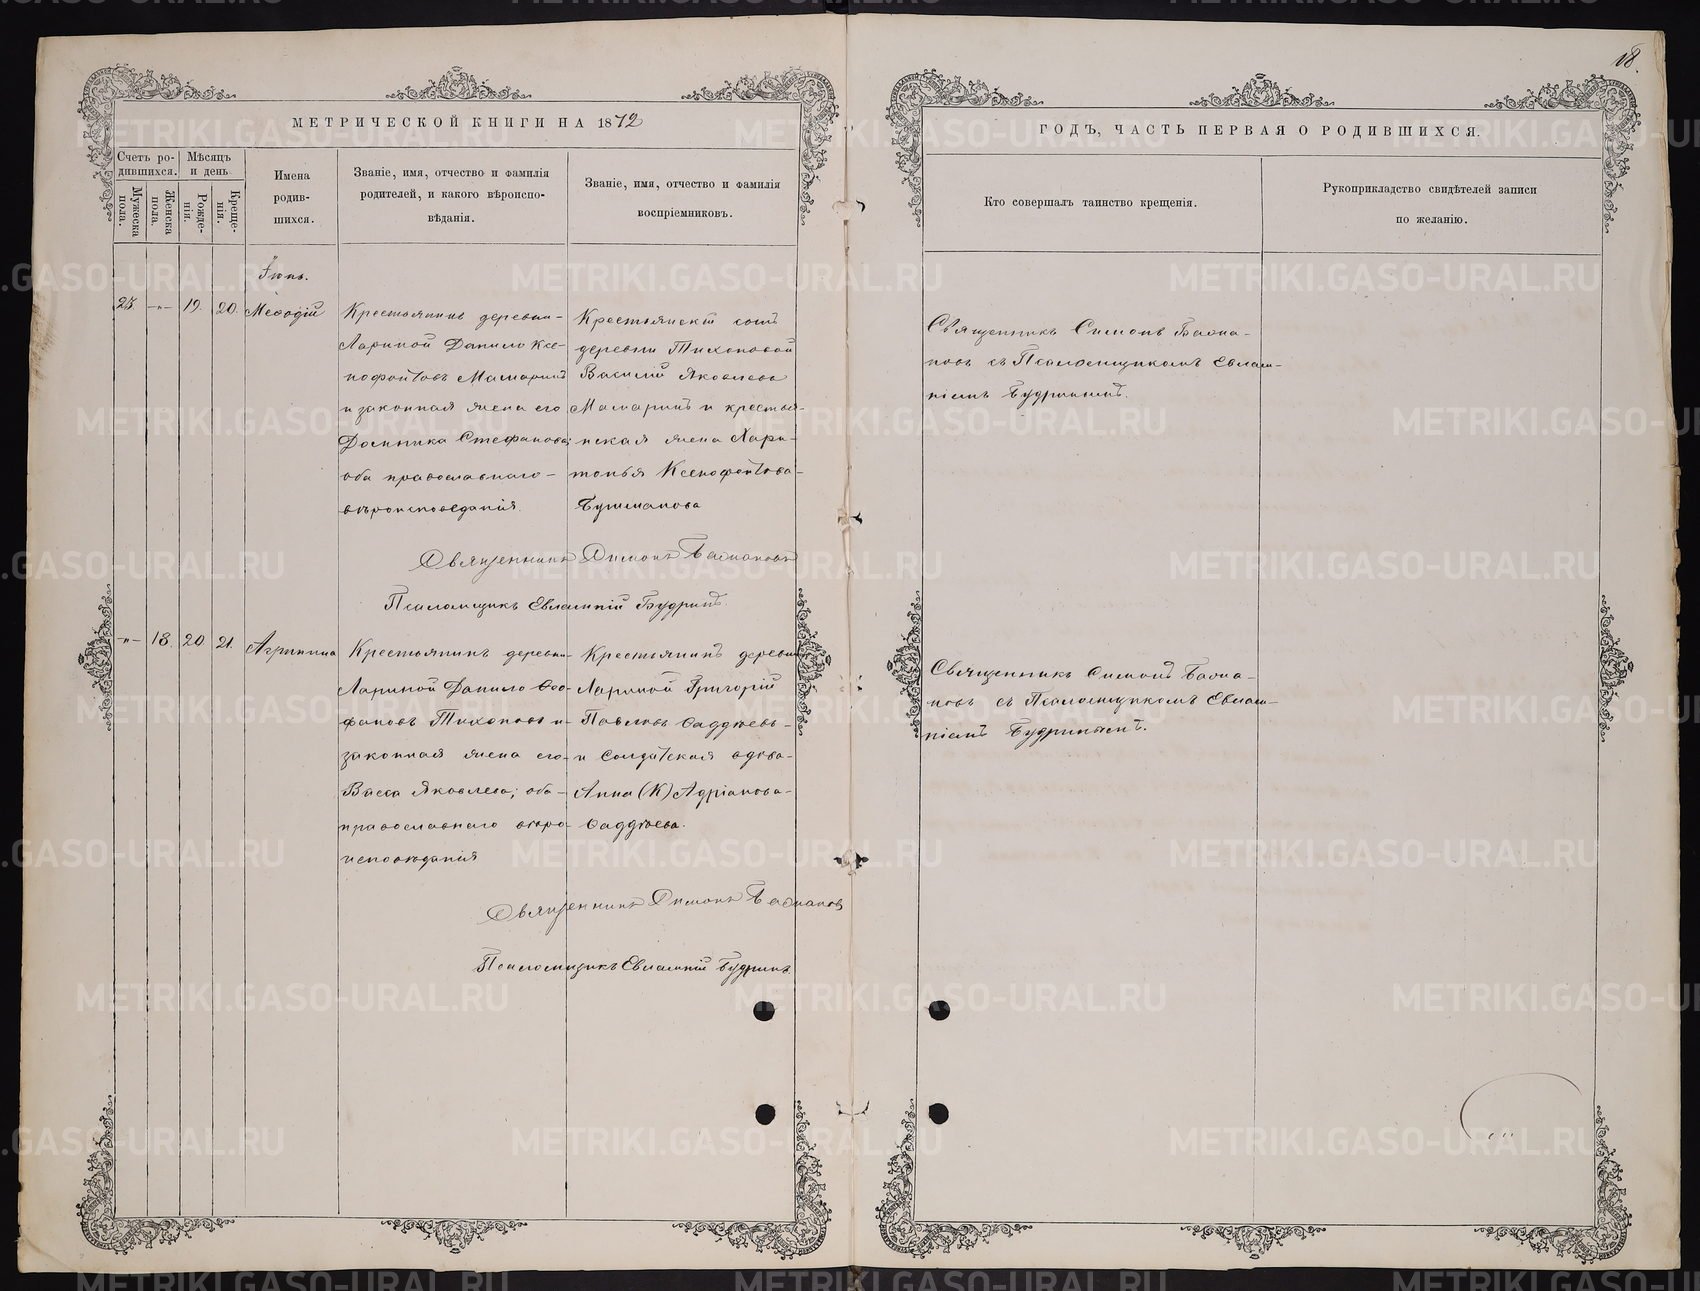 18.
МЕТРИЧЕСКОЙ КНИГИ НА 1872
ГОДЪ, ЧАСТЬ ПЕРВАЯ О РОДИВШИХСЯ.
Счетъ ро-
дившихся.
Мужеска
пола.
Женска
пола.
Мѣсяцъ
и день
Рожде-
нія.
Креще-
нія.
Имена
родив-
шихся.
Званіе, имя, отчество и фамилія
родителей, и какого вѣроиспо-
вѣданія.
Званіе, имя, отчество и фамилія
воспріемниковъ.
Кто совершалъ таинство крещенія.
Рукоприкладство свидѣтелей записи
по желанію.
Іюнь.
25. -"- 19. 20. Меѳодій
Крестьянинъ деревни-
Лариной Данило Ксе-
нофонтовъ Мамаринъ
и законная жена его
Домника Стефанова;
оба православнаго-
вѣроисповеданія.
Крестьянскій сынъ
деревни Тихоновой
Василій Яковлевъ
Мамаринъ и крестья-
нская жена Хари-
тонья Ксенофонтова-
Бушманова
Священникъ Симонъ Баома-
новъ съ Псаломщикомъ Евлам-
піемъ Будринымъ.
Священникъ Симонъ
Псаломщикъ Евлампій Будринъ.
-"- 18. 20 21. Агрипина
Крестьянинъ деревни-
Лариной Данило Ѳео-
фановъ Тихоновъ и-
законная жена его-
Васса Яковлева; оба-
православнаго вѣро-
исповѣданія
Крестьянинъ деревни
Лариной Григорій
Павловъ Саддѣевъ-
и Солдатская вдова-
Анна (К) Адріанова-
Саддѣева.
Священникъ Симонъ
новъ съ Псаломщикомъ Евлам-
піемъ Будринымъ.
Священникъ Симонъ
Псаломщикъ Евлампій Будринъ
METRIKI.GASO-URAL.RU